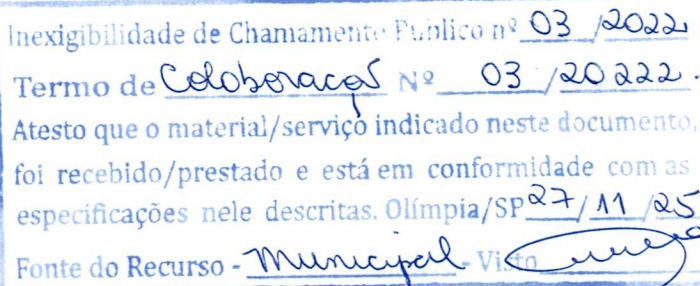 Inexigibilidade de Chamamento Publico nº 03 /2022
Termo de Coloboraçaõ Nº 03 /20222.
Atesto que o material/serviço indicado neste documento,
foi recebido/prestado e está em conformidade com as
especificações nele descritas. Olímpia/SP 27/11/25
Fonte do Recurso - Municipal - Visto